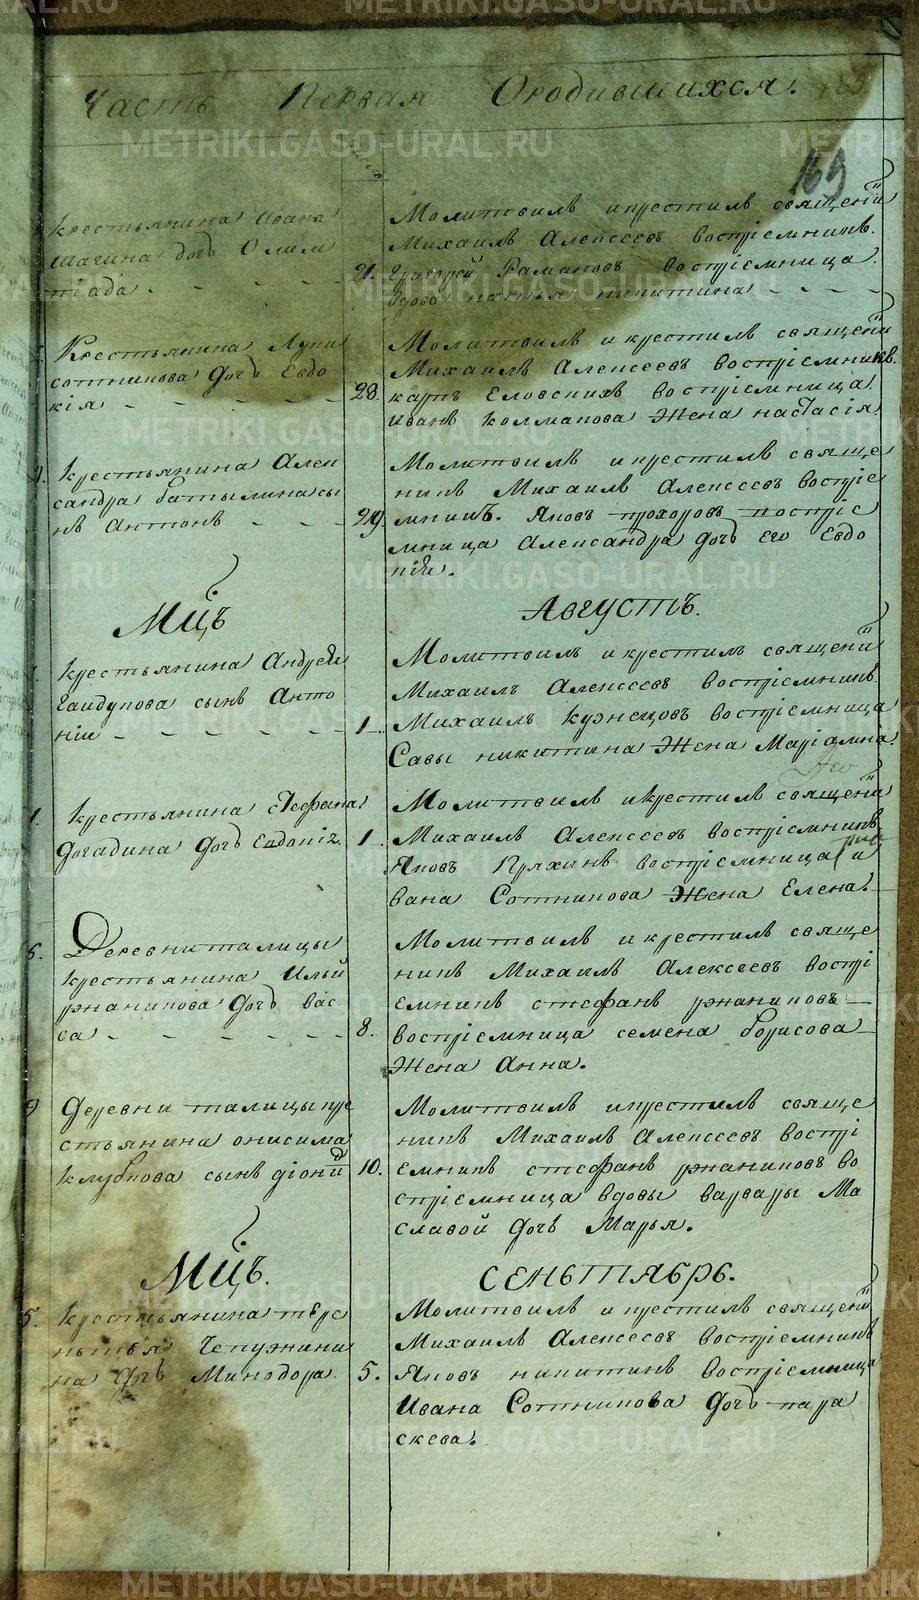 Часть Первая Ородившихся.
169
крестьянина Ивана
Шагина дочь Олим
піада.
21.
Молитвилъ икрестилъ священій
Михаилъ Алексеевъ воспріемникъ.
Григорей Рамановъ воспріемница
вдова никитина
Крестьянина Луки
сотникова дочь Евдо
кія
28.
Молитвилъ и крестилъ священій
Михаилъ Алексеевъ воспріемникъ.
карпъ Еловскихъ воспріемница
иванъ колмакова Жена настасія
крестьянина Алек
сандра батылина сы
нъ Антонъ
29.
Молитвилъ икрестилъ свяще
никъ Михаилъ Алексеевъ воспріе
мникъ. Яковъ прохоровъ воспріе
мница Александра дочь его Евдо
кія.
Мцъ
Августъ.
крестьянина Андрея
Гандукова сынъ Анто
ній
1
Молитвилъ и крестилъ священій
Михаилъ Алексеевъ воспріемникъ.
Михаилъ кузнецовъ воспріемница
Савы никитина Жена Маріамна.
1. крестьянина стефана
догадина дочь Евдокія
1
Молитвилъ икрестилъ священій
Михаилъ Алексеевъ воспріемникъ
Яковъ Пряхинъ воспріемница и
вана Сотникова Жена Елена.
6. Деревни талицы
крестьянина Ильи
ржаникова дочь вас
са
8.
Молитвилъ и крестилъ свяще
никъ Михаилъ Алексеевъ воспрі
емникъ стефанъ ржаниковъ
воспріемница семена борисова
Жена Анна.
9 деревни талицы кре
стьянина онисима
клубкова сынъ діонй
10.
Молитвилъ икрестилъ свяще
никъ Михаилъ Алексеевъ воспрі
емникъ стефанъ ржаниковъ во
спріемница вдовы варвары Ма
славой дочь Марья.
Мцъ.
сеньтябрь.
5. крестьянина тере
нтья Чепужини
на дочь Минодора
5.
Молитвилъ и крестилъ священій
Михаилъ Алексеевъ воспріемникъ
Яковъ никитинъ воспріемница
Ивана Сотникова дочь пара
скева.
METRIKI.GASO-URAL.RU